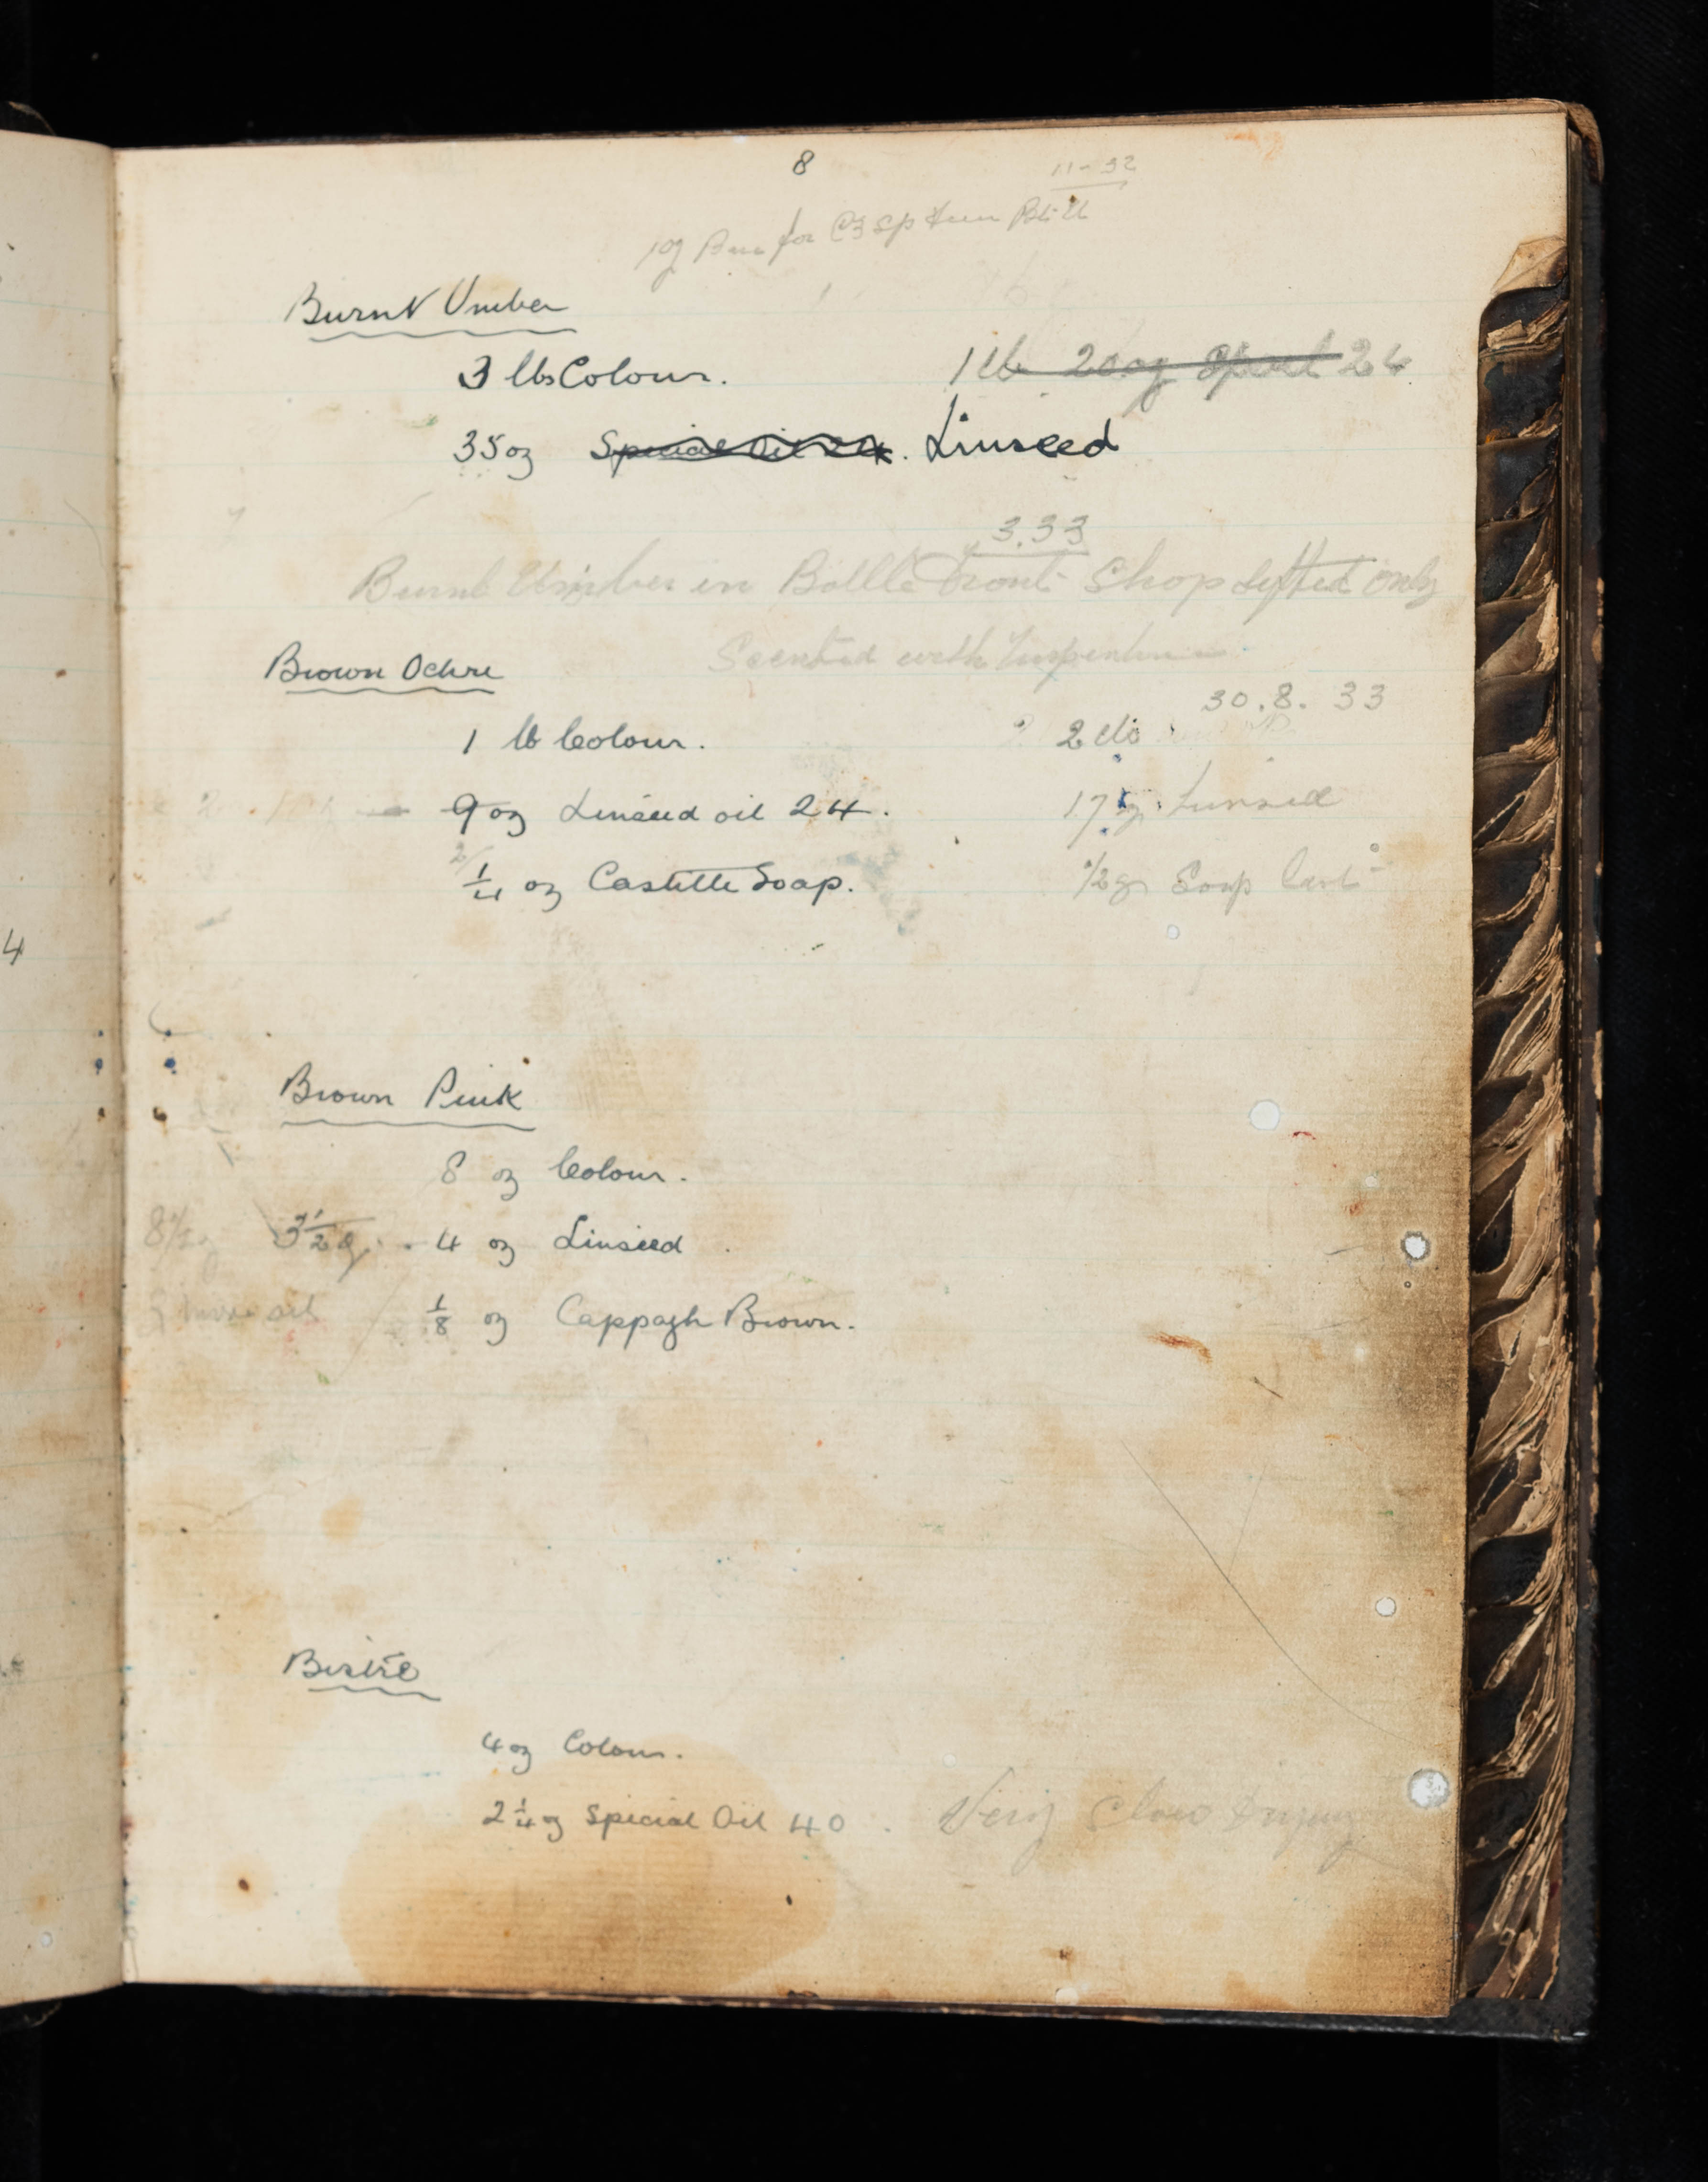 8
11-32
for
Burnt Umber
3 lbs Colour. 1 lb 20 oz 24
35 oz Special Oil 24. Linseed
3.33
Burnt Umber in Bottle Front Shop sifted only
Brown Ochre
Scented with Turpentine
30.8.33
1 lb Colour. 2 do
9 oz Linseed oil 24. 17 Linseed
1/4 oz Castille Soap. 1/2 Soap last
4
Brown Pink
8 oz Colour.
3 1/2 4 oz Linseed
more oil 1/8 oz Cappagh Brown.
Bistre
4 oz Colour.
2 1/4 oz Special Oil 40. Very Slow Drying